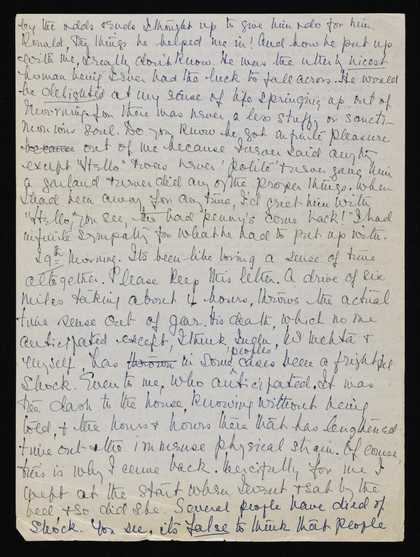 by the odds & ends I thought up to give him & do for him
Ronald, the things he helped me in! And how he put up
with me, I really don't know. He was the utterly nicest
human being I ever had the luck to fall across. He would
be delighted at my sense of life springing up out of
mourning for there was never a less stuffy or sancti-
monious soul. Do you know he got infinite pleasure
out of me because I never said anything
except "Hello" & was never 'polite' & never gave him
a garland & never did any of the proper things. When
I had been away for any time, I'd greet him with
"Hello, you see, the bad penny's come back! I had
infinite sympathy for what he had to put up with.
29th Morning. Its been like losing a sense of time
altogether. Please keep this letter. A drive of six
miles taking about 2 hours, throws the actual
time sense out of gear. His death, which no one
anticipated except, I think Indu, & Mehta &
myself, has in some peoples cases been a frightful
shock. Even to me, who anticipated it was
the dash to the house, knowing without being
told, & the hours & hours there that has lengthened
time out & the immense physical strain. Of course
this is why I came back. Mercifully for me I
wept at the start when I went & sat by the
bed & so did she. Several people have died of
shock. You see, its false to think that people